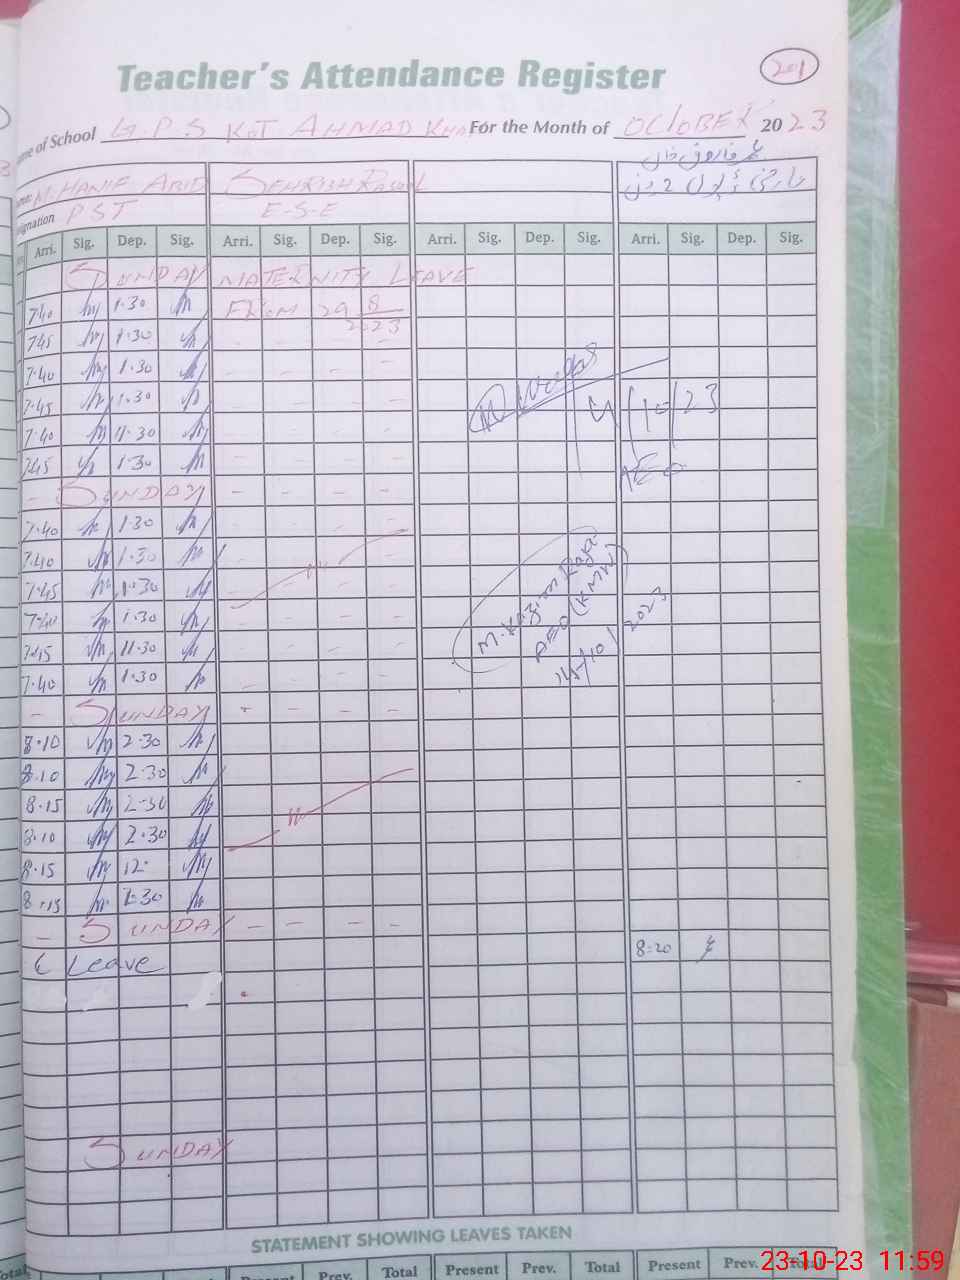 201
Teacher's Attendance Register
me of School G.P.S KOT. AHMAD KHAN For the Month of OCTOBER 2023
M. HANIF ABID SEHRISH RASOOL
signation PST E-S-E
Arri. Sig. Dep. Sig. Arri. Sig. Dep. Sig. Arri. Sig. Dep. Sig. Arri. Sig. Dep. Sig.
SUNDAY MATERNITY LEAVE
7:40 1·30 FROM 29 8
2023
7:45 1·30 - - - -
7:40 1·30 - - - -
7:45 1·30 - - - -
4/10/23
7:40 11·30 - - - -
7:45 1·30 - - - -
AEO
- SUNDAY - - - -
7·40 1·30 - - - -
7:40 1·30
7·45 1·30 - - -
M. Kazim Raza
7:40 1·30 - - - -
AEO (KMW)
7:45 11·30 - - - -
14/10/2023
7·40 1·30 - - - -
- SUNDAY - - - -
8·10 2·30
8·10 2·30
8·15 2-30
8·10 2·30
8·15 12·
8·15 2·30
- SUNDAY - - - -
Leave 8:20
SUNDAY
STATEMENT SHOWING LEAVES TAKEN
Total Present Prev. Total Present Prev. Total Present Prev. Total
23-10-23 11:59